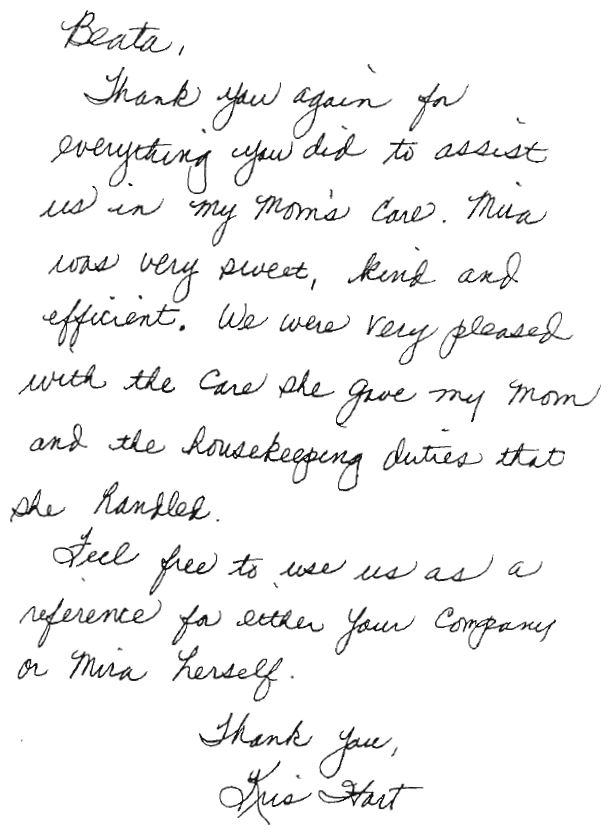 Beata,
Thank you again for
everything you did to assist
us in my Mom's Care. Mira
was very sweet, kind and
efficient. We were very pleased
with the Care she gave my Mom
and the housekeeping duties that
she handled.
Feel free to use us as a
reference for either your Company
or Mira herself.
Thank you,
Kris Hart